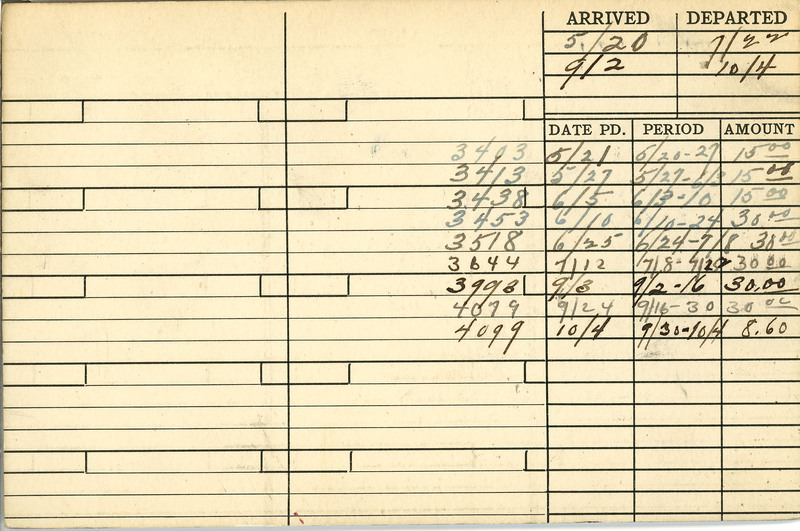 ARRIVED DEPARTED
5/20 7/22
9/2 10/4
DATE PD. PERIOD AMOUNT
3403 5/21 5/20-27 15 00
3413 5/27 5/27-6/3 15 00
3438 6/5 6/3-10 15 00
3453 6/10 6/10-24 30 00
3518 6/25 6/24-7/8 30 00
3644 7/12 7/8- 30 00
3993 9/3 9/2-16 30.00
4079 9/24 9/16-30 30 00
4099 10/4 9/30-10/4 8.60